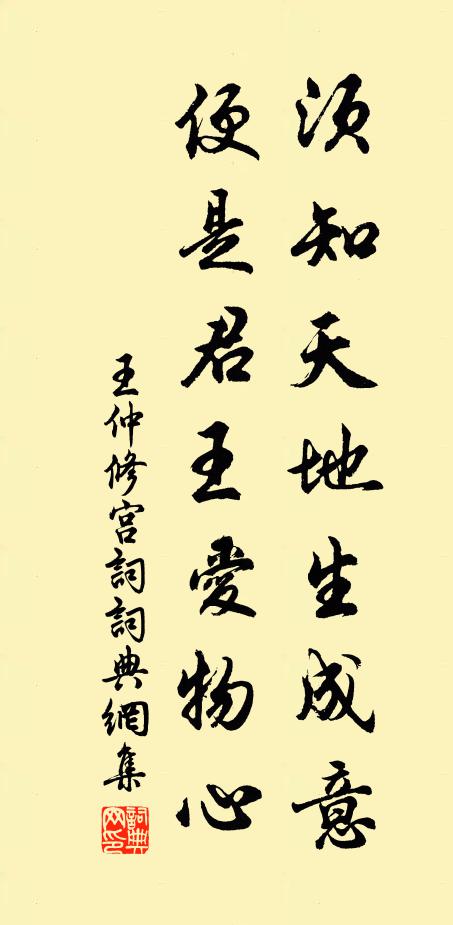 須知天地生成意
便是君王愛物心
王仲修宮詞詞典網集
詞典
网印